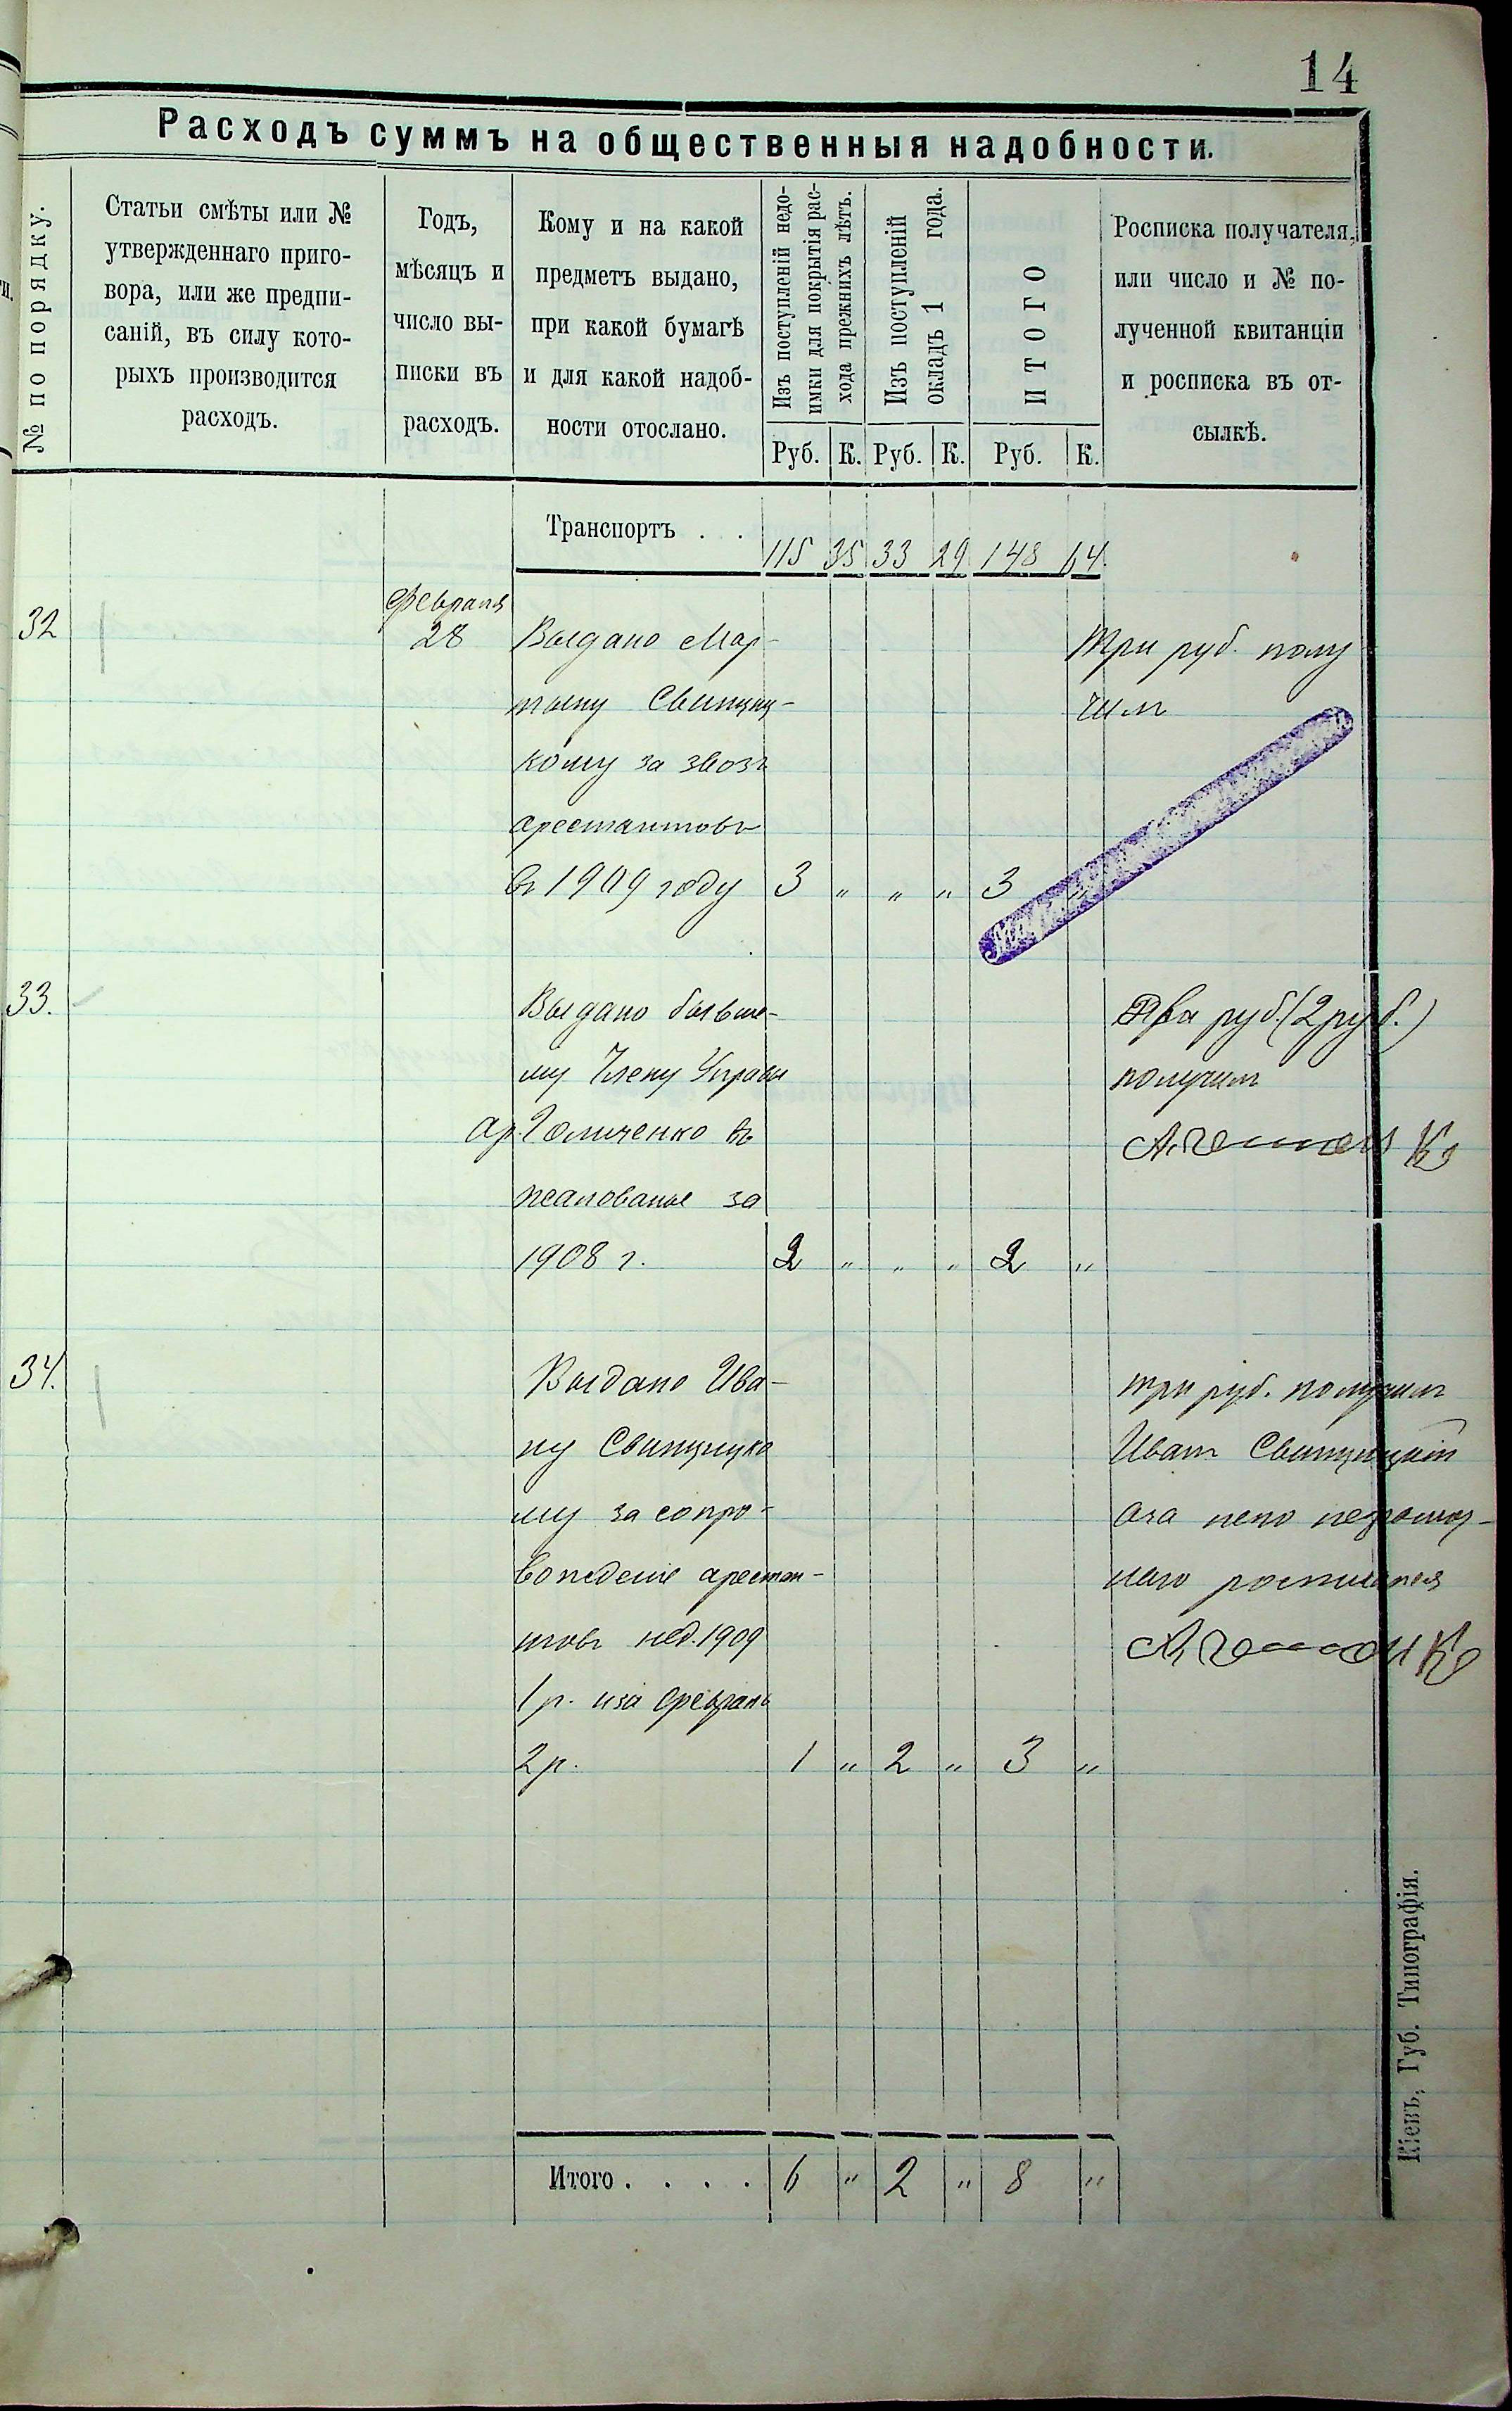 14
Расходъ суммъ на общественныя надобности.
№ по порядку.
Статьи смѣты или №
утвержденнаго приго-
вора, или же предпи-
саній, въ силу кото-
рыхъ производится
расходъ.
Годъ,
мѣсяцъ и
число вы-
писки въ
расходъ.
Кому и на какой
предметъ выдано,
при какой бумагѣ
и для какой надоб-
ности отослано.
Изъ поступленій недо-
имки для покрытія рас-
хода прежнихъ лѣтъ.
Изъ поступленій
окладъ 1 года.
ИТОГО
Росписка получателя,
или число и № по-
лученной квитанціи
и росписка въ от-
сылкѣ.
Руб. К. Руб. К. Руб. К.
Транспортъ . . 115 35 33 29 148 64
Февраля
32 28 Выдано Мар-
тыну Свинциц-
кому за звозъ
арестантовъ
въ 1909 году 3 " " " 3 "
Три руб. полу
чилъ
33. Выдано бывше-
му Члену Управы
Ар. Голиченко въ
жалованье за
1908 г. 2 " " " 2 "
Два руб. (2 руб.)
получилъ
34. Выдано Ива-
ну Свинцицко
му за сопро-
вожденіе арестан-
товъ нед. 1909
1 р. и за февраль
2 р. 1 " 2 " 3 "
три руб. получилъ
Иванъ Свинцицкій
а за него неграмот-
наго росписался
Итого . . . . 6 " 2 " 8 "
Кіевъ, Губ. Типографія.